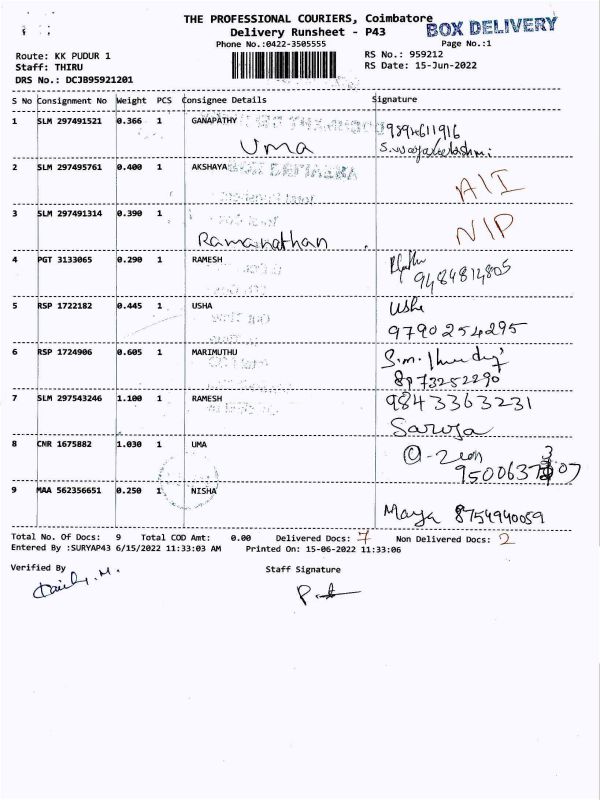 THE PROFESSIONAL COURIERS, Coimbatore
BOX DELIVERY
Delivery Runsheet - P43
Phone No.:0422-3505555
Page No.:1
Route: KK PUDUR 1
RS No.: 959212
Staff: THIRU
RS Date: 15-Jun-2022
DRS No.: DCJB95921201
S No Consignment No Weight PCS Consignee Details Signature
1 SLM 297491521 0.366 1 GANAPATHY
Uma
2 SLM 297495761 0.400 1 AKSHAYA
A/I
3 SLM 297491314 0.390 1
Ramanathan N/P
4 PGT 3133065 0.290 1 RAMESH
9484814805
5 RSP 1722182 0.445 1 USHA Usha
9790254295
6 RSP 1724906 0.605 1 MARIMUTHU
8973252290
7 SLM 297543246 1.100 1 RAMESH 9843363231
Saroja
8 CNR 1675882 1.030 1 UMA
9 MAA 562356651 0.250 1 NISHA
Maya 8754940059
Total No. Of Docs: 9 Total COD Amt: 0.00 Delivered Docs: 7 Non Delivered Docs: 2
Entered By :SURYAP43 6/15/2022 11:33:03 AM Printed On: 15-06-2022 11:33:06
Verified By Staff Signature